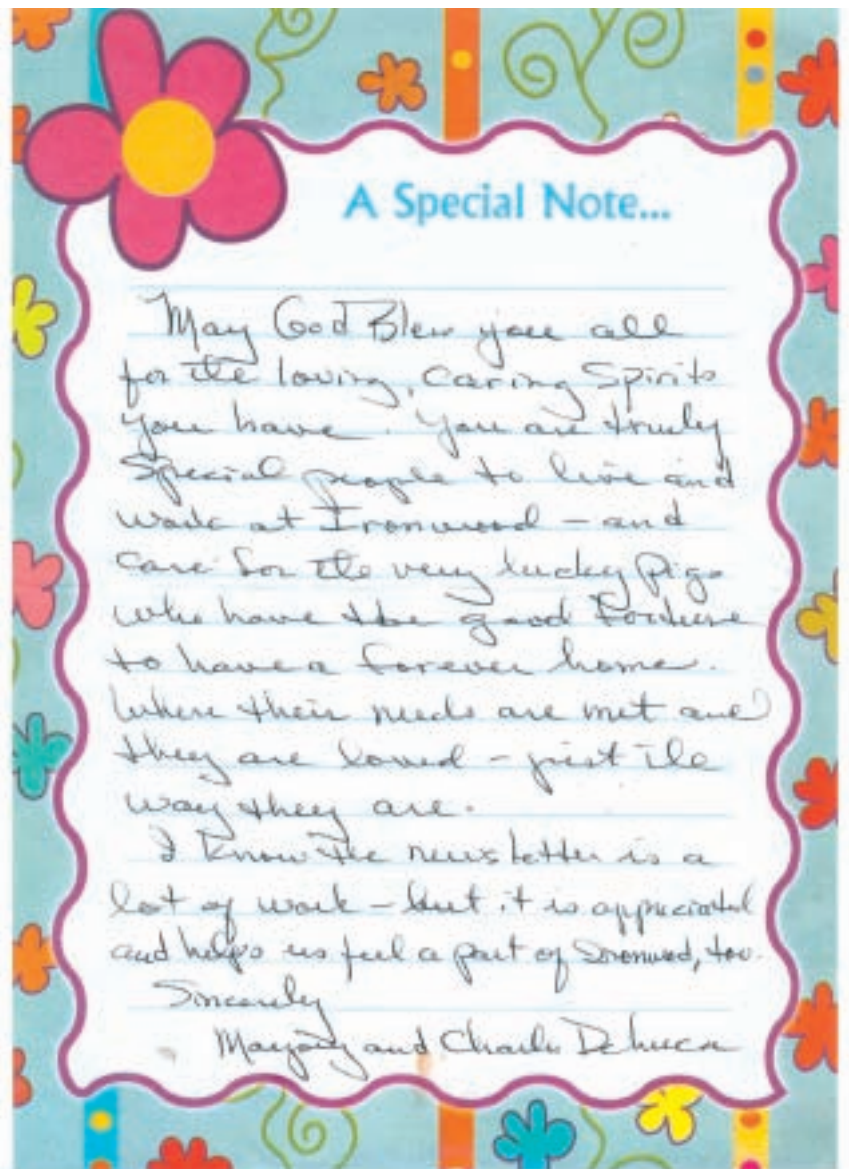 A Special Note...
May God Bless you all
for the loving, caring Spirits
you have. You are truly
Special people to live and
work at Ironwood - and
care for the very lucky pigs
who have the good fortune
to have a forever home.
Where their needs are met and
they are loved - just the
way they are.
I know the newsletter is a
lot of work - but it is appreciated
and helps us feel a part of Ironwood, too.
Sincerely
Marjory and Charles